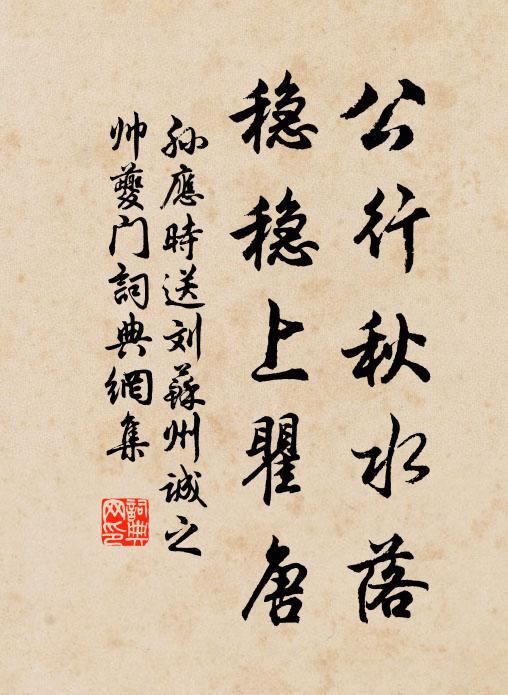 公行秋水落
稳稳上瞿唐
孙應時送刘蘇州诚之
帅夔门詞典網集
詞典
网印